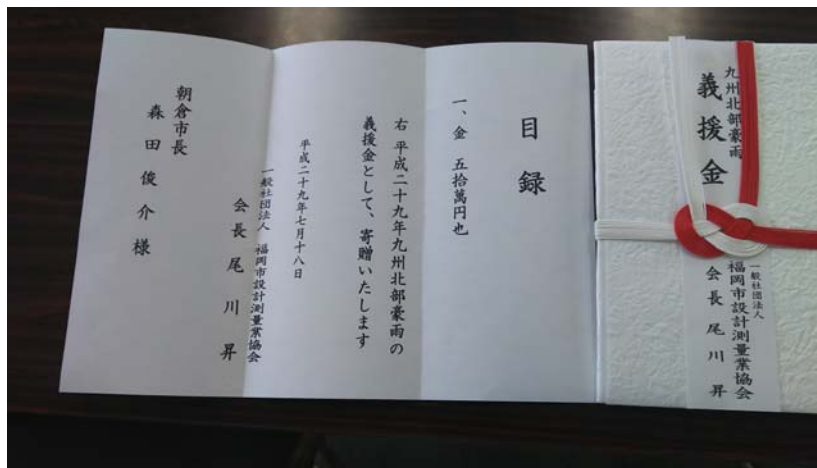 九州北部豪雨
義援金
一般社団法人
福岡市設計測量業協会
会長 尾川 昇
目録
一、金 五拾萬円也
右 平成二十九年九州北部豪雨の
義援金として、寄贈いたします
平成二十九年七月十八日
一般社団法人 福岡市設計測量業協会
会長 尾川 昇
朝倉市長
森田俊介様